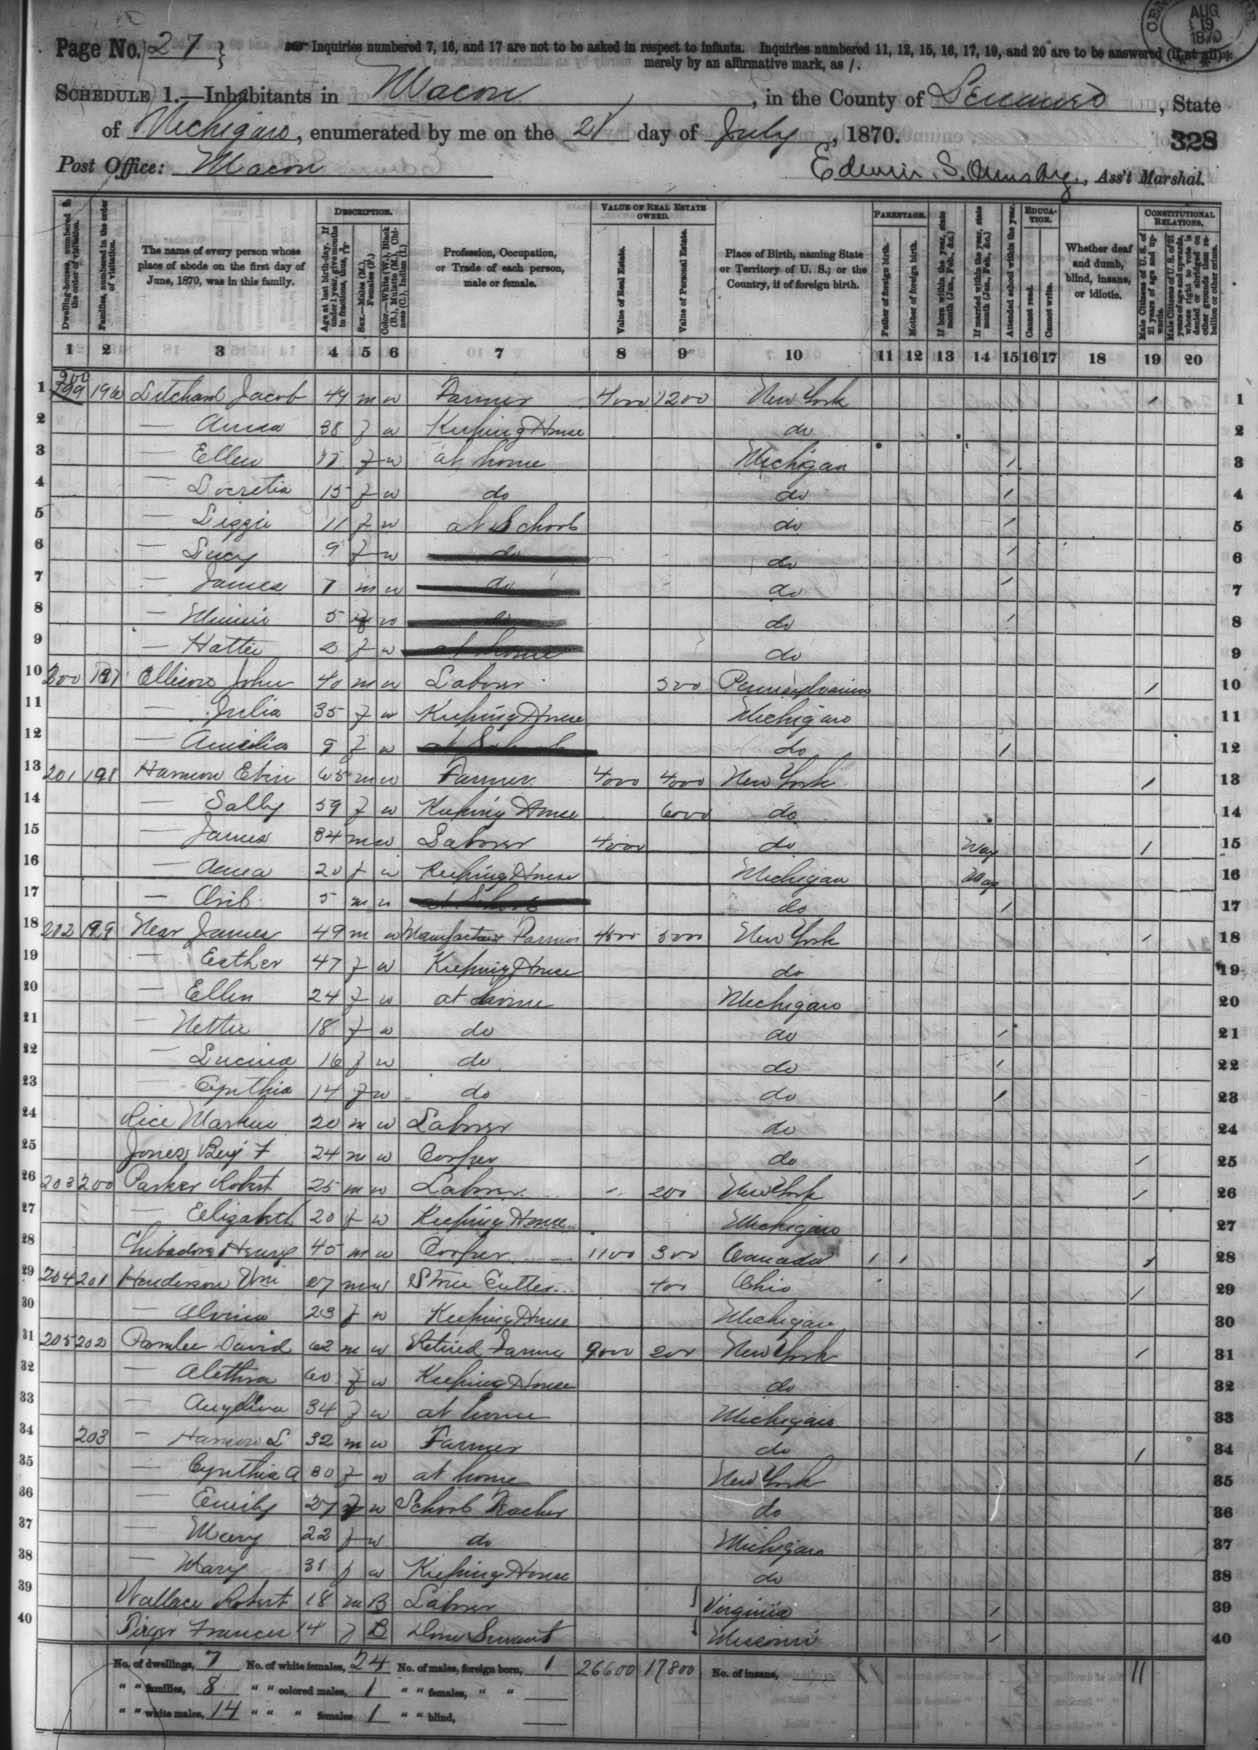 AUG 19 1870
Page No. 27
Inquiries numbered 7, 16, and 17 are not to be asked in respect to infants. Inquiries numbered 11, 12, 15, 16, 17, 19, and 20 are to be answered (if at all)
merely by an affirmative mark, as /.
SCHEDULE 1.—Inhabitants in Macon, in the County of Lenawee, State
of Michigan, enumerated by me on the 21 day of July, 1870.
328
Post Office: Macon
Edwin S. Ormsby, Ass't Marshal.
Dwelling-houses, numbered in the order of visitation.
Families, numbered in the order of visitation.
The name of every person whose place of abode on the first day of June, 1870, was in this family.
DESCRIPTION.
Age at last birth-day. If under 1 year, give months in fractions, thus, 3/12
Sex.—Males (M.), Females (F.)
Color.—White (W.), Black (B.), Mulatto (M.), Chinese (C.), Indian (I.)
Profession, Occupation, or Trade of each person, male or female.
VALUE OF REAL ESTATE OWNED.
Value of Real Estate.
Value of Personal Estate.
Place of Birth, naming State or Territory of U. S.; or the Country, if of foreign birth.
PARENTAGE.
Father of foreign birth.
Mother of foreign birth.
If born within the year, state month (Jan., Feb., &c.)
If married within the year, state month (Jan., Feb., &c.)
Attended school within the year.
EDUCATION.
Cannot read.
Cannot write.
Whether deaf and dumb, blind, insane, or idiotic.
CONSTITUTIONAL RELATIONS.
Male Citizens of U. S. of 21 years of age and upwards.
Male Citizens of U. S. of 21 years of age and upwards, whose right to vote is denied or abridged on other grounds than rebellion or other crime.
1 2 3 4 5 6 7 8 9 10 11 12 13 14 15 16 17 18 19 20
1 196 Jacob 49 m w Farmer 4000 1200 New York / 1
2 — 38 f w Keeping House do 2
3 — Ellen 17 f w at home Michigan / 3
4 — Locretia 15 f w do do / 4
5 — Liggie 11 f w at School do / 5
6 — Lucy 9 f w do do / 6
7 — James 7 m w do do / 7
8 — Minnie 5 f w do do / 8
9 — Hattie f w at home do 9
10 200 197 Ellison John 40 m w Labour 300 Pennsylvania / 10
11 — Julia 35 f w Keeping House Michigan 11
12 — Amelia 9 f w at School do / 12
13 201 198 Harmon Ebin 65 m w Farmer 4000 4000 New York / 13
14 — Sally 59 f w Keeping House 6000 do 14
15 — James 34 m w Laborer 4000 do May / 15
16 — Anna 20 f w Keeping House Michigan May 16
17 — 5 m w at School do / 17
18 202 199 Near James 49 m w Manufacturer 4500 5000 New York / 18
19 — Esther 47 f w Keeping House do 19
20 — Ellen 24 f w at home Michigan 20
21 — Nettie 18 f w do do / 21
22 — Lucina 16 f w do do / 22
23 — Cynthia 14 f w do do / 23
24 Rice Markus 20 m w Laborer do 24
25 Jones Benj F 24 m w Cooper do / 25
26 203 200 Parker Robert 25 m w Laborer 200 New York / 26
27 — Elizabeth 20 f w Keeping House Michigan 27
28 Henry 45 m w Cooper 1100 300 Canada / / / 28
29 204 201 Henderson Wm 27 m w Stone Cutter 400 Ohio / 29
30 — Alvina 23 f w Keeping House Michigan 30
31 205 202 Pamlee David 62 m w Retired Farmer 9000 200 New York / 31
32 — Alethea 60 f w Keeping House do 32
33 — Angelina 34 f w at home Michigan 33
34 203 — Harmon L 32 m w Farmer do / 34
35 — Cynthia A 30 f w at home New York 35
36 — Emily 27 f w School Teacher do 36
37 — Mary 22 f w do Michigan 37
38 — Mary 31 f w Keeping House do 38
39 Wallace Robert 18 m B Laborer Virginia / 39
40 Frances 14 f B Dom Servant Missouri / 40
No. of dwellings, 7 No. of white females, 24 No. of males, foreign born, 1 26600 17,800 No. of insane, 11
" " families, 8 " " colored males, 1 " " females, " "
" " white males, 14 " " " females 1 " " blind,